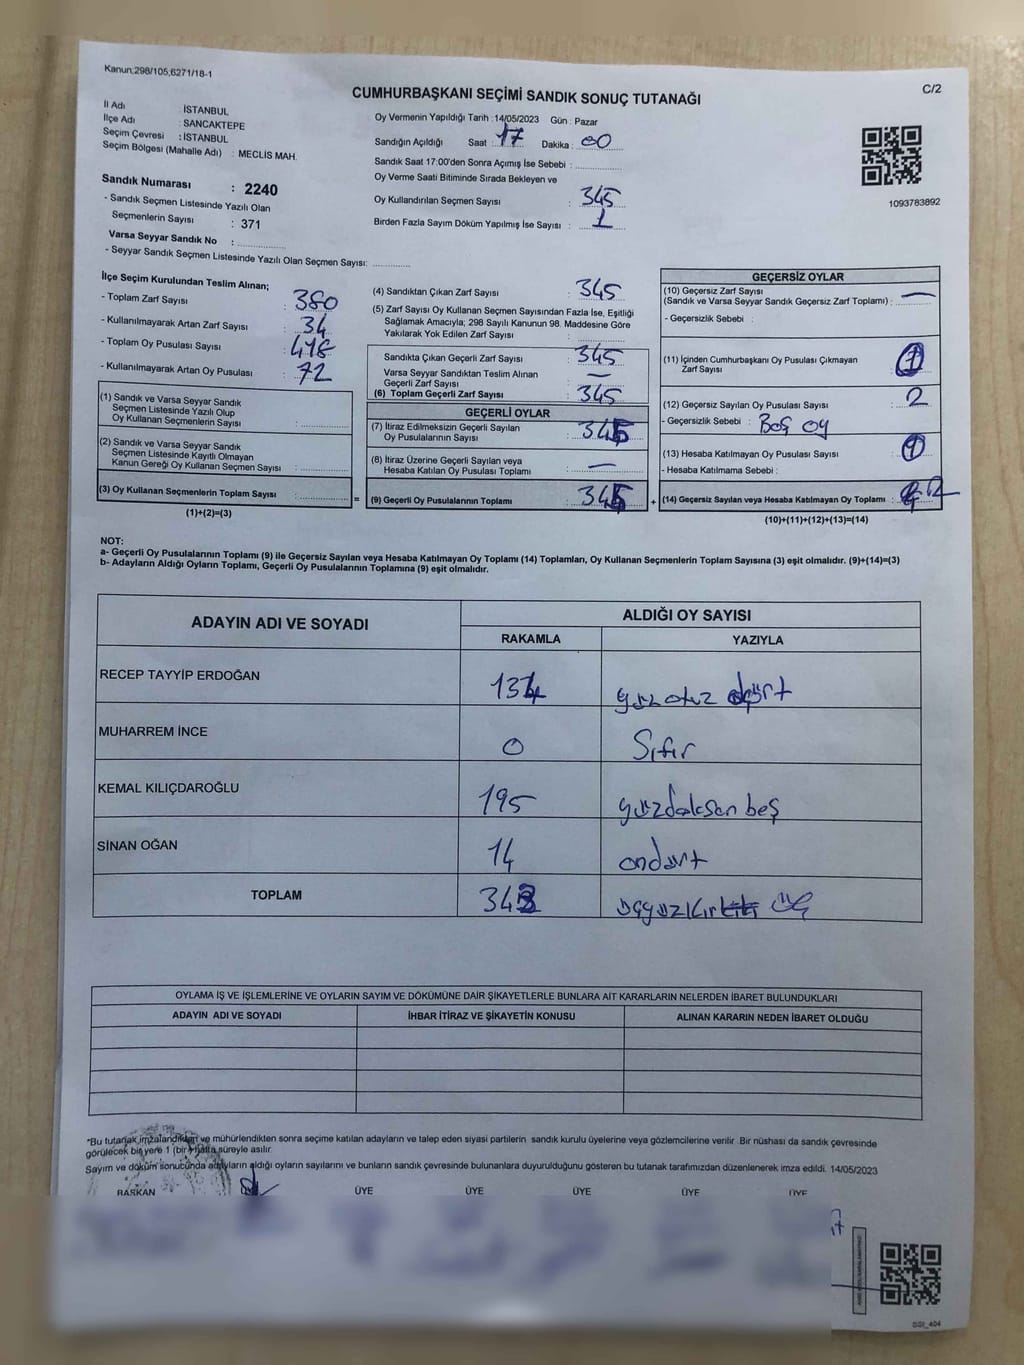 Kanun;298/105,6271/18-1
C/2
CUMHURBAŞKANI SEÇİMİ SANDIK SONUÇ TUTANAĞI
İl Adı : İSTANBUL
İlçe Adı : SANCAKTEPE
Seçim Çevresi : İSTANBUL
Seçim Bölgesi (Mahalle Adı) : MECLİS MAH.
Sandık Numarası : 2240
- Sandık Seçmen Listesinde Yazılı Olan
Seçmenlerin Sayısı : 371
Varsa Seyyar Sandık No :
- Seyyar Sandık Seçmen Listesinde Yazılı Olan Seçmen Sayısı:
Oy Vermenin Yapıldığı Tarih :14/05/2023 Gün : Pazar
Sandığın Açıldığı Saat : 17 Dakika : 00
Sandık Saat 17:00'den Sonra Açımış İse Sebebi :
Oy Verme Saati Bitiminde Sırada Bekleyen ve
Oy Kullandırılan Seçmen Sayısı : 345
Birden Fazla Sayım Döküm Yapılmış İse Sayısı : 1
1093783892
İlçe Seçim Kurulundan Teslim Alınan;
- Toplam Zarf Sayısı : 380
- Kullanılmayarak Artan Zarf Sayısı : 34
- Toplam Oy Pusulası Sayısı : 418
- Kullanılmayarak Artan Oy Pusulası : 72
(1) Sandık ve Varsa Seyyar Sandık
Seçmen Listesinde Yazılı Olup
Oy Kullanan Seçmenlerin Sayısı :
(2) Sandık ve Varsa Seyyar Sandık
Seçmen Listesinde Kayıtlı Olmayan
Kanun Gereği Oy Kullanan Seçmen Sayısı :
(3) Oy Kullanan Seçmenlerin Toplam Sayısı :
(1)+(2)=(3)
=
(4) Sandıktan Çıkan Zarf Sayısı : 345
(5) Zarf Sayısı Oy Kullanan Seçmen Sayısından Fazla İse, Eşitliği
Sağlamak Amacıyla; 298 Sayılı Kanunun 98. Maddesine Göre
Yakılarak Yok Edilen Zarf Sayısı :
Sandıkta Çıkan Geçerli Zarf Sayısı : 345
Varsa Seyyar Sandıktan Teslim Alınan
Geçerli Zarf Sayısı : —
(6) Toplam Geçerli Zarf Sayısı : 345
GEÇERLİ OYLAR
(7) İtiraz Edilmeksizin Geçerli Sayılan
Oy Pusulalarının Sayısı :
(8) İtiraz Üzerine Geçerli Sayılan veya
Hesaba Katılan Oy Pusulası Toplamı : —
(9) Geçerli Oy Pusulalarının Toplamı :
+
GEÇERSİZ OYLAR
(10) Geçersiz Zarf Sayısı
(Sandık ve Varsa Seyyar Sandık Geçersiz Zarf Toplamı) : —
- Geçersizlik Sebebi :
(11) İçinden Cumhurbaşkanı Oy Pusulası Çıkmayan
Zarf Sayısı :
(12) Geçersiz Sayılan Oy Pusulası Sayısı : 2
- Geçersizlik Sebebi : Boş oy
(13) Hesaba Katılmayan Oy Pusulası Sayısı :
- Hesaba Katılmama Sebebi :
(14) Geçersiz Sayılan veya Hesaba Katılmayan Oy Toplamı : 2
(10)+(11)+(12)+(13)=(14)
NOT:
a- Geçerli Oy Pusulalarının Toplamı (9) ile Geçersiz Sayılan veya Hesaba Katılmayan Oy Toplamı (14) Toplamları, Oy Kullanan Seçmenlerin Toplam Sayısına (3) eşit olmalıdır. (9)+(14)=(3)
b- Adayların Aldığı Oyların Toplamı, Geçerli Oy Pusulalarının Toplamına (9) eşit olmalıdır.
ADAYIN ADI VE SOYADI
ALDIĞI OY SAYISI
RAKAMLA YAZIYLA
RECEP TAYYİP ERDOĞAN 134 yüzotuz dört
MUHARREM İNCE 0 Sıfır
KEMAL KILIÇDAROĞLU 195 yüzdoksan beş
SİNAN OĞAN 14 ondört
TOPLAM 343 üçyüzkırk üç
OYLAMA İŞ VE İŞLEMLERİNE VE OYLARIN SAYIM VE DÖKÜMÜNE DAİR ŞİKAYETLERLE BUNLARA AİT KARARLARIN NELERDEN İBARET BULUNDUKLARI
ADAYIN ADI VE SOYADI İHBAR İTİRAZ VE ŞİKAYETİN KONUSU ALINAN KARARIN NEDEN İBARET OLDUĞU
*Bu tutanak imzalandıktan ve mühürlendikten sonra seçime katılan adayların ve talep eden siyasi partilerin sandık kurulu üyelerine veya gözlemcilerine verilir. Bir nüshası da sandık çevresinde
görülecek bir yere 1 (bir) hafta süreyle asılır.
Sayım ve döküm sonucunda adayların aldığı oyların sayılarını ve bunların sandık çevresinde bulunanlara duyurulduğunu gösteren bu tutanak tarafımızdan düzenlenerek imza edildi. 14/05/2023
BAŞKAN ÜYE ÜYE ÜYE ÜYE ÜYE
SSI_404